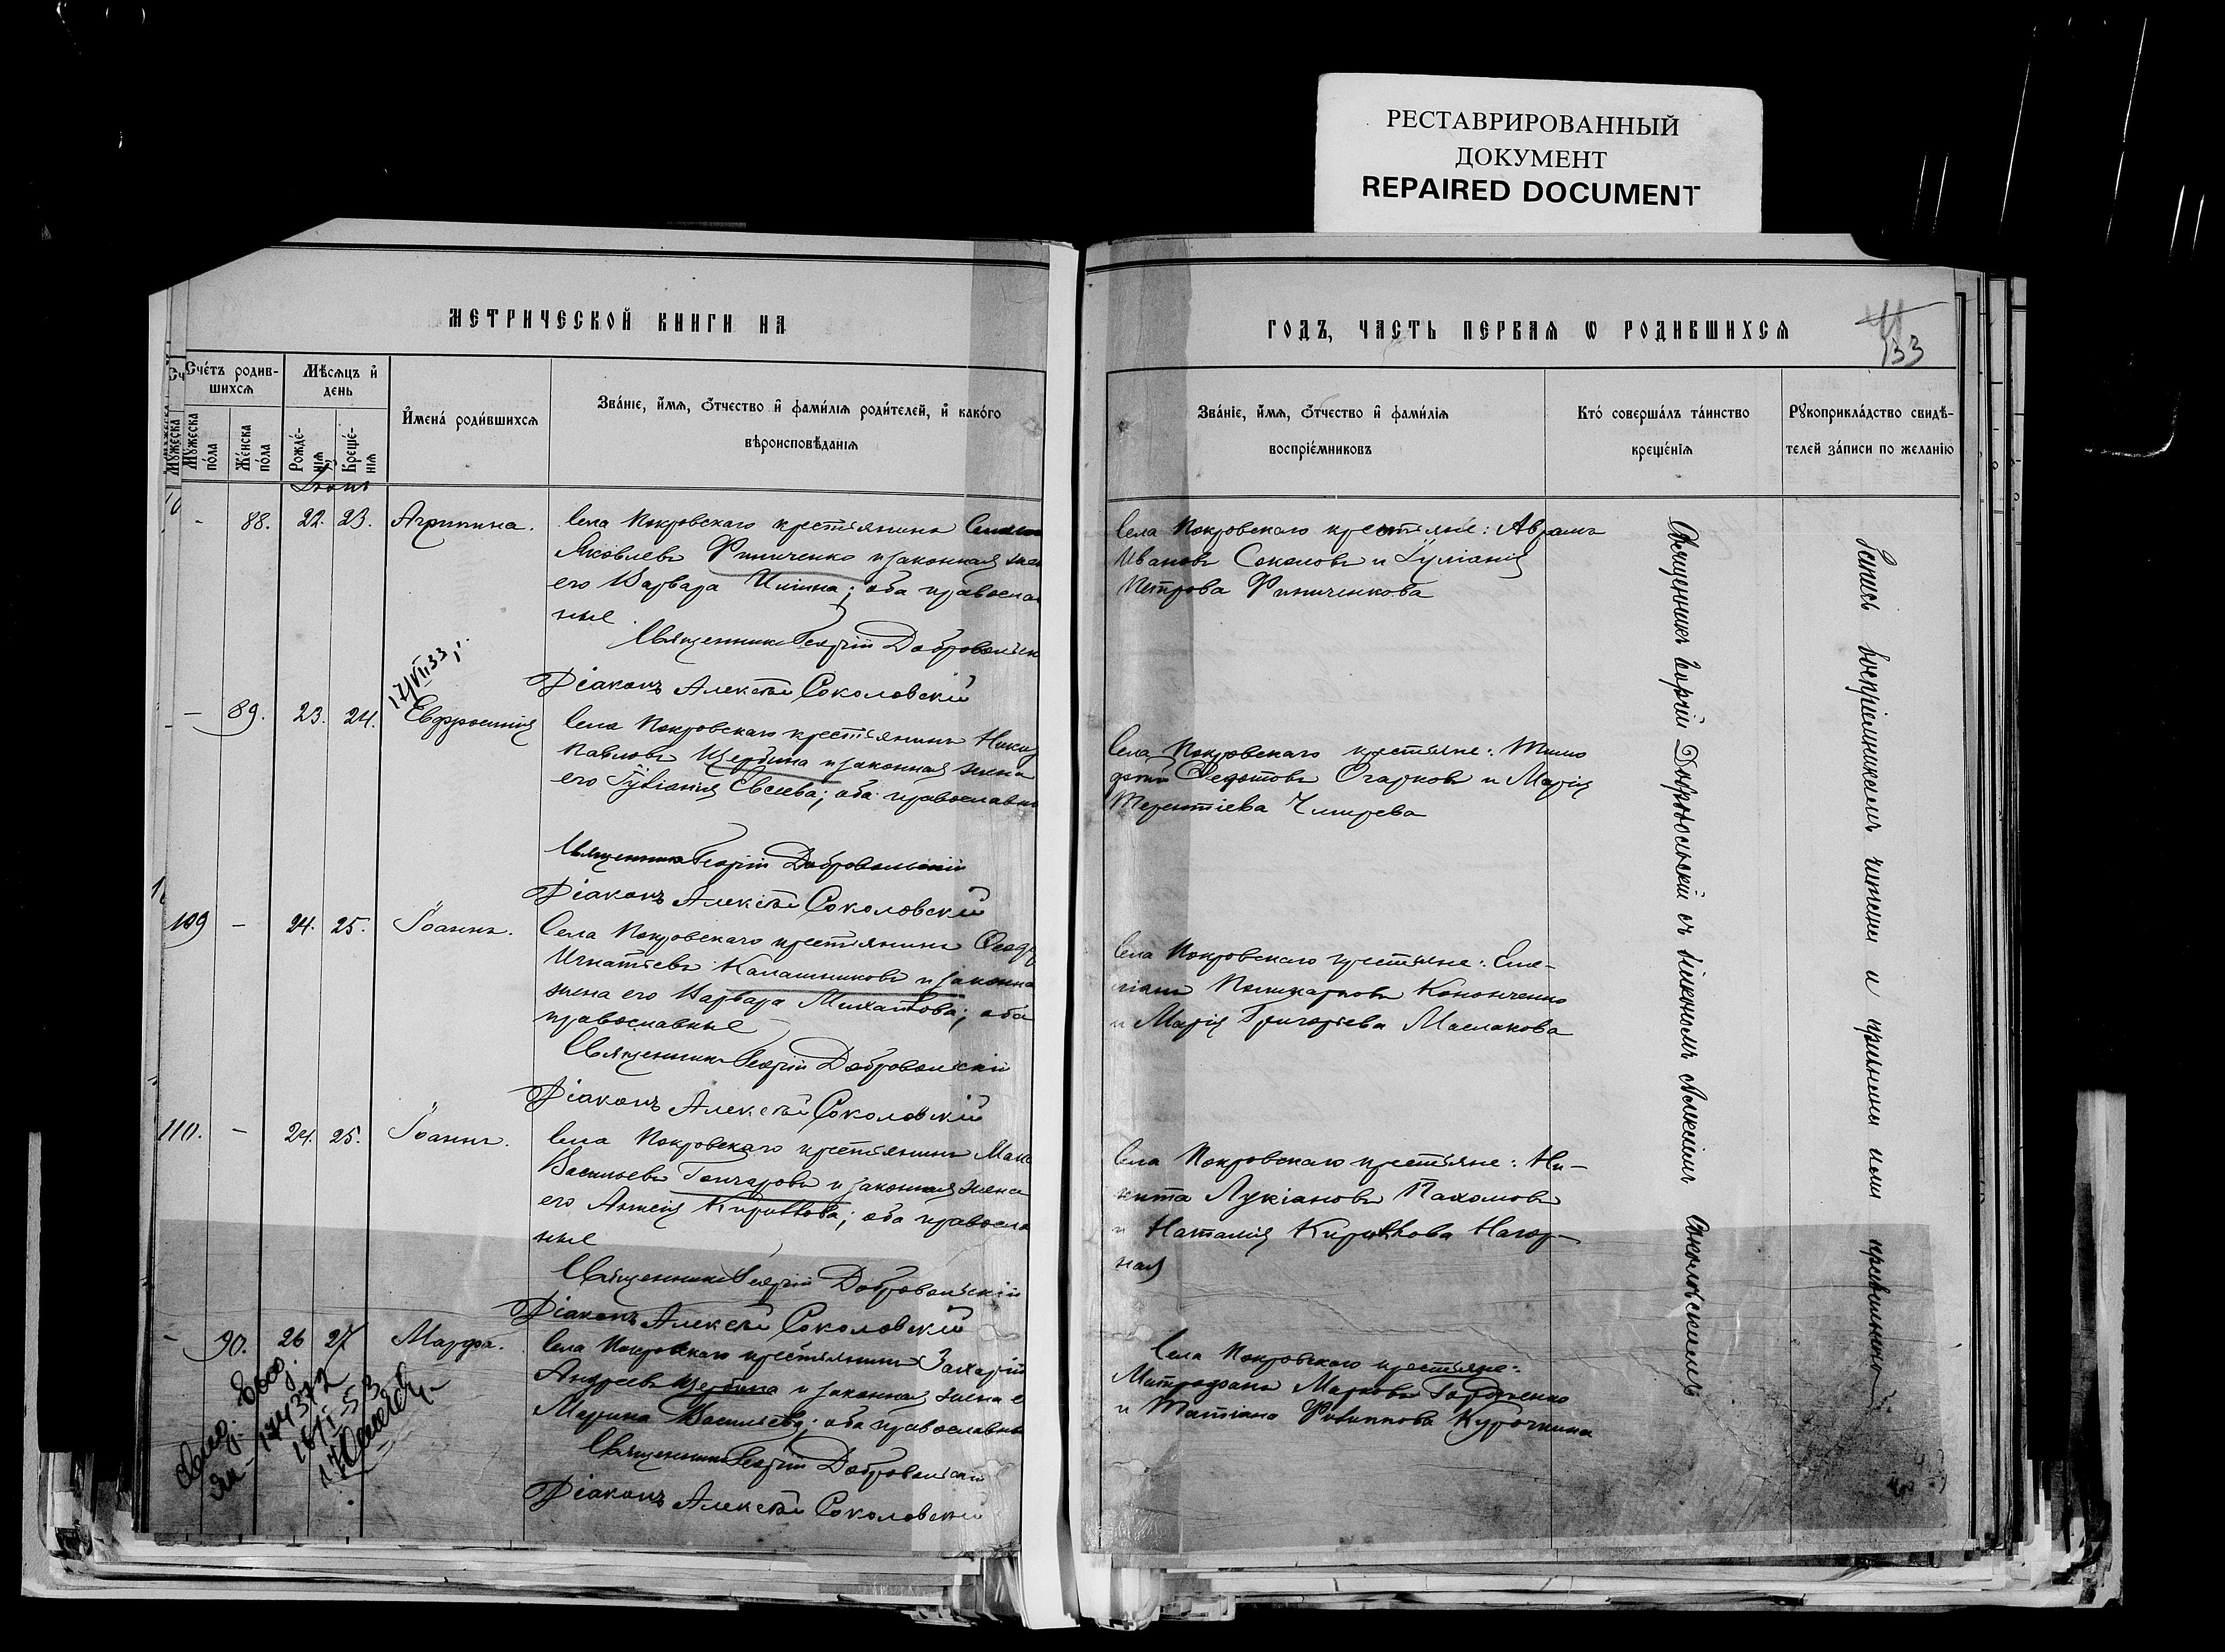 РЕСТАВРИРОВАННЫЙ
ДОКУМЕНТ
REPAIRED DOCUMENT
МЕТРИЧЕСКОЙ КНИГИ НА
ГОДЪ, ЧАСТЬ ПЕРВАЯ Ѡ РОДИВШИХСЯ
133
Счéтъ родив-
шихся
Мѣсяцъ и҆
день
Мꙋжеска
пóла
Жéнска
пóла
Рождé-
нїя
Крещé-
нїя
И҆менá роди́вшихся
Звáнїе, и҆́мя, ѻ҆́тчество и҆ фами́лїя роди́телей, и҆ какóго
вѣроисповѣданїя
Звáнїе, и҆́мя, ѻ҆́тчество и҆ фами́лїя
воспрїéмниковъ
Ктó совершáлъ тáинство
крещéнїя
Рꙋкоприклáдство свидѣ-
телей зáписи по желáнїю
- 88. 22. 23. Агрипина.
Села Покровскаго крестьянинъ
Яковлевъ Финиченко и законная
его Варвара Ильина; оба правосла
ные
Священникъ Георгій Добровольск
Діаконъ Алексѣй Соколовскій
Села Покровскаго крестьяне: Аврамъ
Ивановъ Соколовъ и Іуліанія
Петрова Финиченкова
17/VII 33
- 89. 23. 24. Евфросинія
Села Покровскаго крестьянинъ Ники
Павловъ Щербина и законная жена
его Іуліанія Евсеева; оба православн
Священникъ Георгій Добровольскій
Діаконъ Алексѣй Соколовскій
Села Покровскаго крестьяне: Тимо
фей Федотовъ Огарковъ и Марія
Терентіева Чмирева
109 - 24. 25. Іоаннъ.
Села Покровскаго крестьянинъ Феодо
Игнатьевъ Калашниковъ и законна
жена его Варвара Михайлова; оба
православные
Священникъ Георгій Добровольскій
Діаконъ Алексѣй Соколовскій
Села Покровскаго крестьяне: Еме-
ліанъ Поликарповъ Кононченко
и Марія Григорьева Маслакова
110. - 24. 25. Іоаннъ.
Села Покровскаго крестьянинъ Макс
Васильевъ Гончаровъ и законная жена
его Анисія Кирилова; оба правосла
ные
Священникъ Георгій Добровольскій
Діаконъ Алексѣй Соколовскій
Села Покровскаго крестьяне: Ни-
кита Лукіановъ Пахомовъ
и Наталія Кирилова Нагор-
ная
- 90. 26 27 Марфа.
Села Покровскаго крестьянинъ Захарій
Андреевъ Щербина и законная жена е
Марина Васильева; оба православны
Священникъ Георгій Добровольскій
Діаконъ Алексѣй Соколовскій
Села Покровскаго крестьяне:
Митрофанъ Марковъ
и Татіана Филиппова Курочкина
Священникъ Георгій Добровольскій съ діакономъ Алексіемъ Соколовскимъ